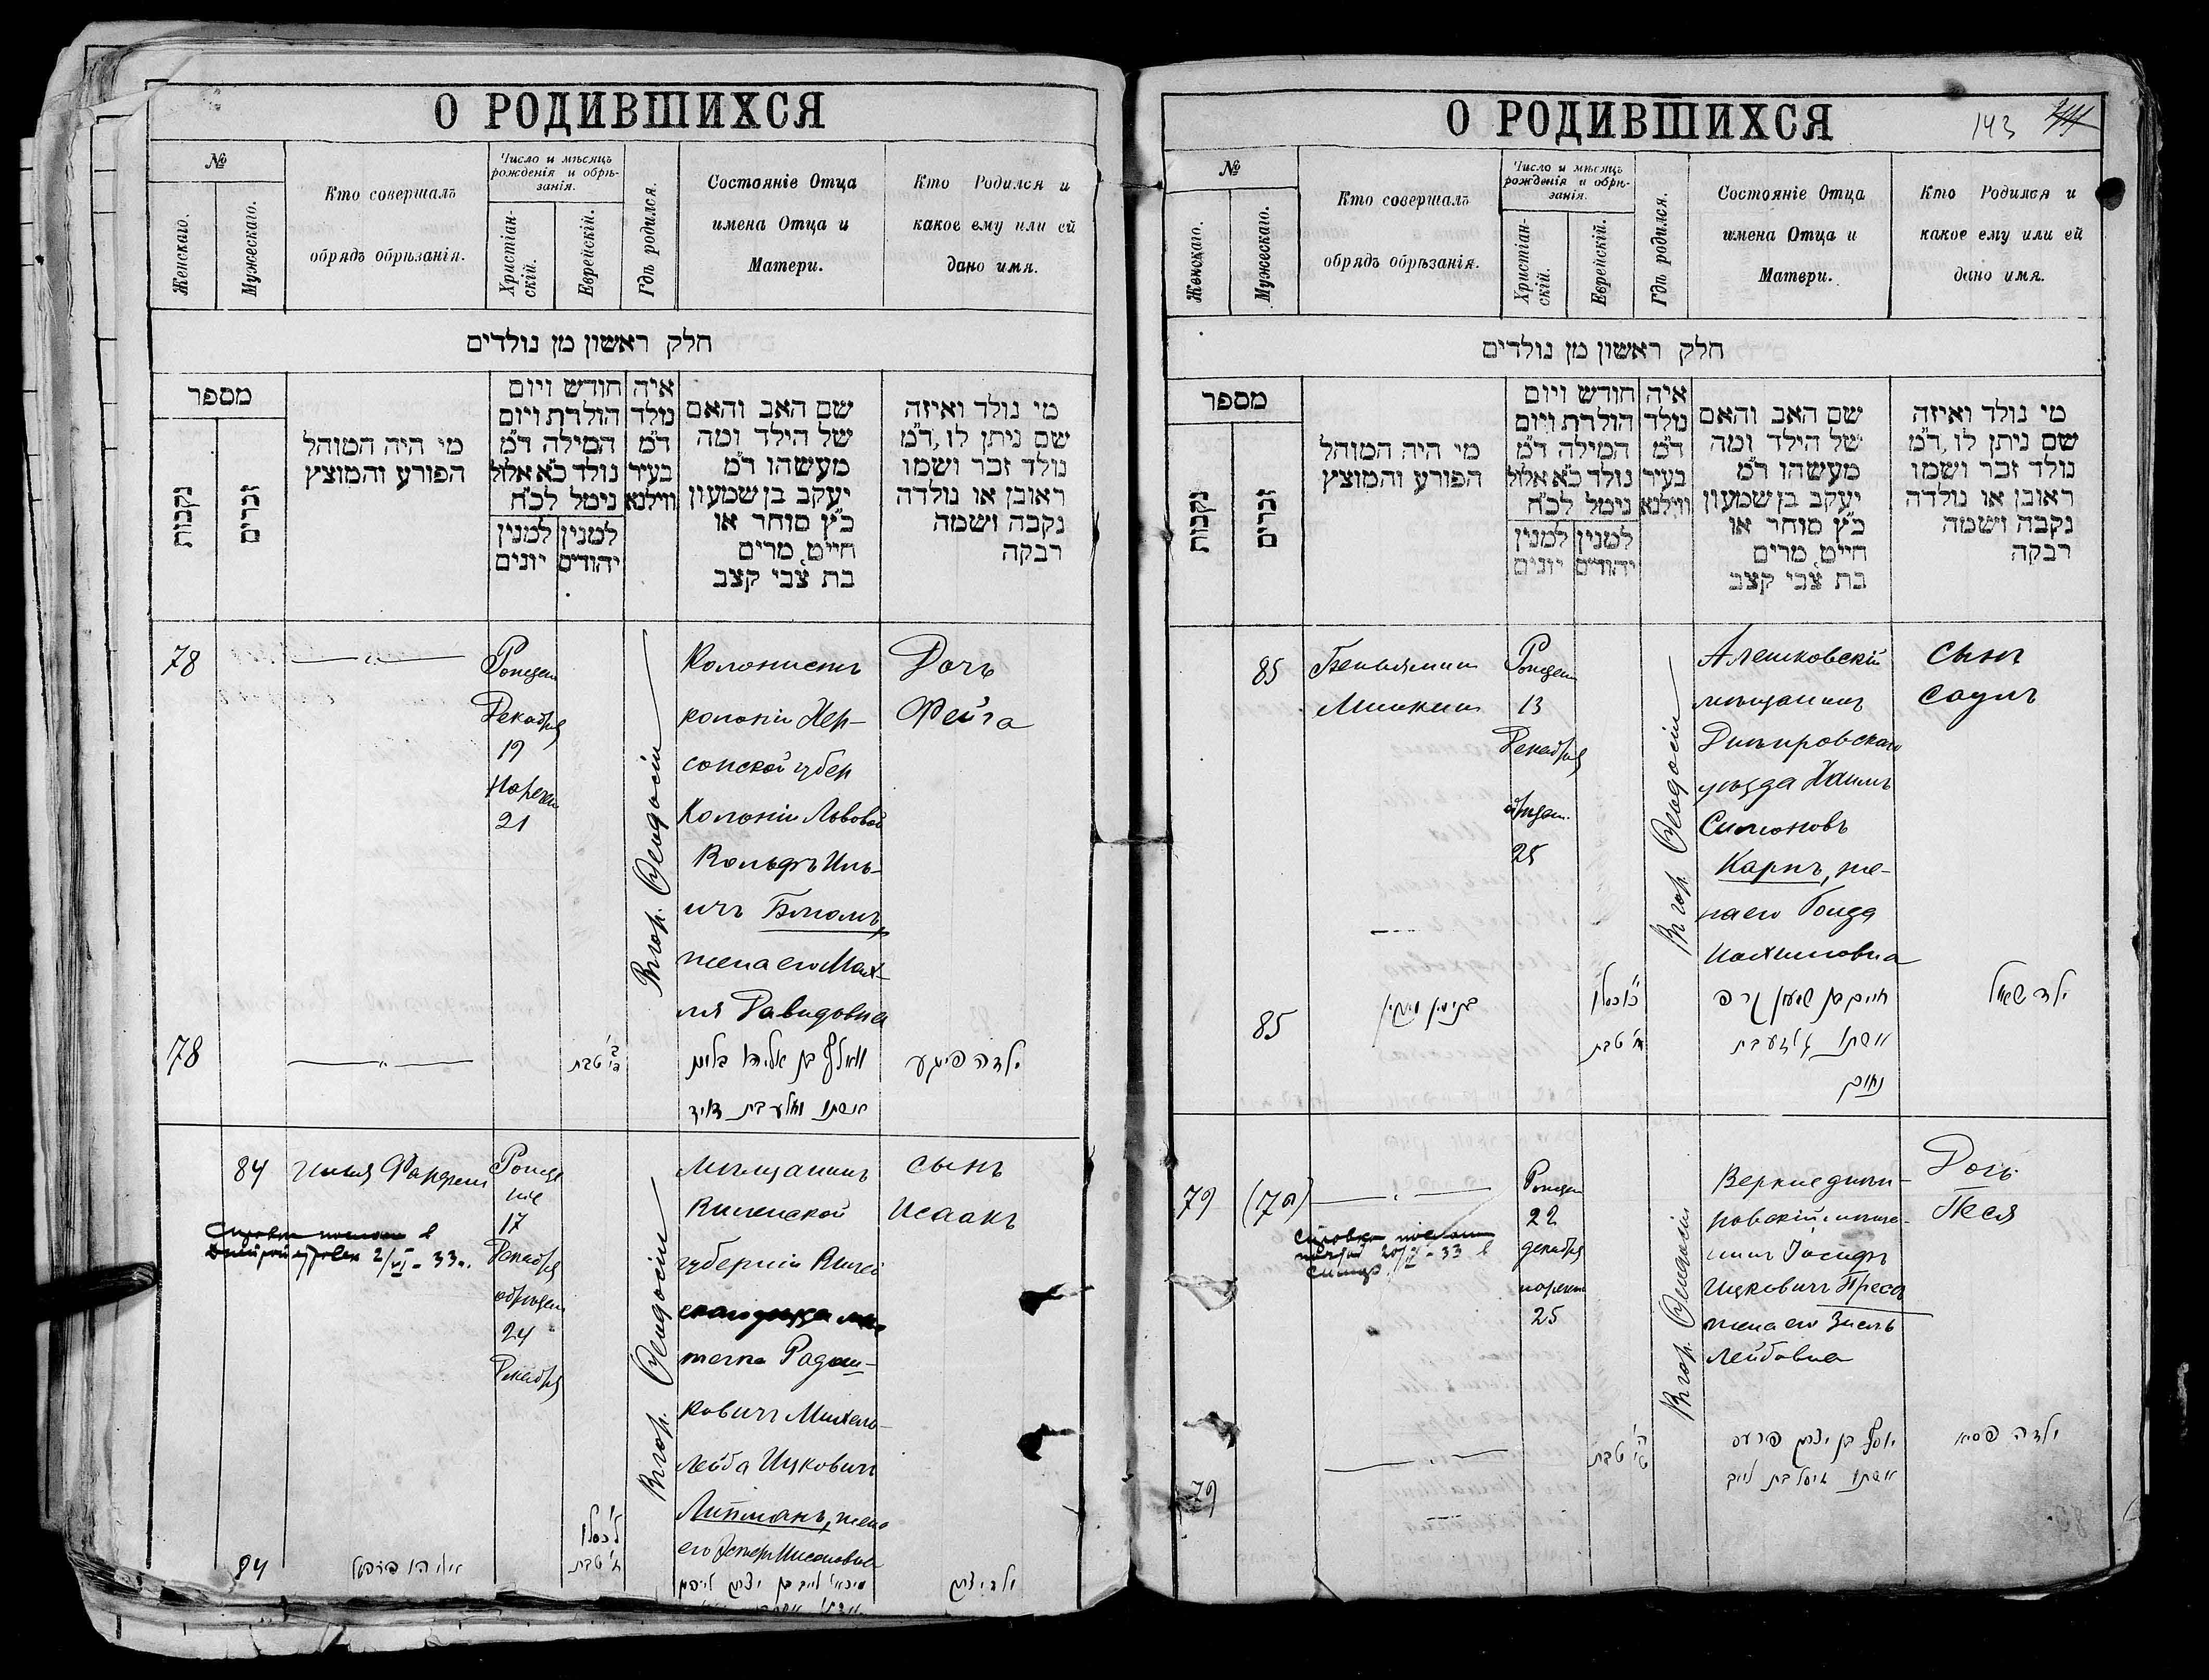 О РОДИВШИХСЯ
№
Женскаго.
Мужескаго.
Кто совершалъ
обрядъ обрѣзанія.
Число и мѣсяцъ
рожденія и обрѣ-
занія.
Христіан-
скій.
Еврейскій.
Гдѣ родился.
Состояніе Отца
имена Отца и
Матери.
Кто Родился и
какое ему или ей
дано имя.
חלק ראשון מן נולדים
מספר
נקבות
זכרים
מי היה המוהל
הפורע והמוצץ
חודש ויום
הולדת ויום
המילה ד״מ
נולד כ״א אלול
נימל לכ״ח
למנין
יונים
למנין
יהודים
איה
נולד
ד״מ
בעיר
ווילנא
שם האב והאם
של הילד ומה
מעשהו ד״מ
יעקב בן שמעון
כ״ץ סוחר או
חייט מרים
בת צבי קצב
מי נולד ואיזה
שם ניתן לו, ד״מ
נולד זכר ושמו
ראובן או נולדה
נקבה ושמה
רבקה
78
Рожден
Декабря
19
Наречен
21
Въ гор. Ѳеодосіи
Колонистъ
колоніи Хер-
сонской губер
Колоніи Львовой
Вольфъ Иль-
ичъ Блюмъ,
жена его Мах-
ля Давидовна
Дочь
Фейга
78
טבת
וואלף בן אליהו בלום
אשתו מחלע בת דוד
ילדה פייגע
84
Рожде
ніе
17
Декабря
обрѣзан
24
Декабря
2/VI - 33 г.
Въ гор. Ѳеодосіи
Мѣщанинъ
Виленской
губерніи Вилей
течка Радош-
ковичъ Михель-
Лейба Ицковичъ
Липманъ, жена
сынъ
Исаакъ
84
אליהו
ל׳ כסלו
ז׳ טבת
מיכאל לייב בן יצחק ליפמן
ילד יצחק
О РОДИВШИХСЯ
143
№
Женскаго.
Мужескаго.
Кто совершалъ
обрядъ обрѣзанія.
Число и мѣсяцъ
рожденія и обрѣ-
занія.
Христіан-
скій.
Еврейскій.
Гдѣ родился.
Состояніе Отца
имена Отца и
Матери.
Кто Родился и
какое ему или ей
дано имя.
חלק ראשון מן נולדים
מספר
נקבות
זכרים
מי היה המוהל
הפורע והמוצץ
חודש ויום
הולדת ויום
המילה ד״מ
נולד כ״א אלול
נימל לכ״ח
למנין
יונים
למנין
יהודים
איה
נולד
ד״מ
בעיר
ווילנא
שם האב והאם
של הילד ומה
מעשהו ד״מ
יעקב בן שמעון
כ״ץ סוחר או
חייט מרים
בת צבי קצב
מי נולד ואיזה
שם ניתן לו, ד״מ
נולד זכר ושמו
ראובן או נולדה
נקבה ושמה
רבקה
85
Беньяминъ
Рожден
13
Декабря
обрѣзан.
25
Въ гор. Ѳеодосіи
Алешковскій
мѣщанинъ
Днѣпровскаго
уѣзда Хаимъ
Симоновъ
Карпъ, же-
на его Голда
Нахимовна
сынъ
Саулъ
85
בנימין
כסלו
טבת
חיים בן שמעון קרפ
אשתו גאלדע בת
נחום
ילד שאול
79
Рожден
22
декабря
наречен
25
20/ - 33
Въ гор. Ѳеодосіи
Верхнеднѣп-
ровскій мѣща-
нинъ Іосифъ
Ицковичъ Пресъ
жена его Зисль
Лейбовна
Дочь
Песя
79
טבת
יוסף בן יצחק פרעס
אשתו זיסל בת לייב
ילדה פסיא